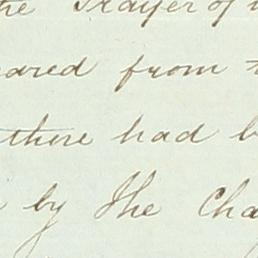 the Prayer of
eared from
there had
by the Cha